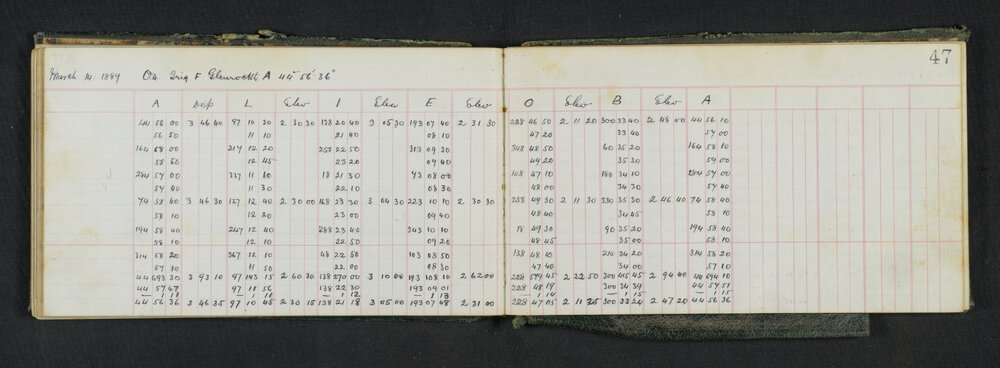 47
March 14 1889 On Trig F Glenrowth A 44° 56' 36"
A Dep L Elev I Elev E Elev O Elev B Elev A
44 56 00 3 46 40 97 10 30 2 30 30 138 20 40 3 05 30 193 07 40 2 31 30 228 46 50 2 11 20 300 33 40 2 48 00 44 56 10
56 50 11 10 21 40 08 10 47 20 33 40 57 00
164 58 00 217 12 20 258 22 50 313 09 30 348 48 50 60 35 20 164 58 10
58 50 12 45 23 20 09 40 49 20 35 30 59 00
284 57 00 337 11 10 18 21 30 73 08 00 108 47 10 180 34 10 284 57 00
57 40 11 30 22 10 08 30 48 00 34 30 57 40
74 58 40 3 46 30 127 12 40 2 30 00 168 23 30 3 04 30 223 10 10 2 30 30 258 49 30 2 11 30 330 35 30 2 46 40 74 58 40
58 10 12 20 23 00 09 40 48 40 34 45 58 10
194 58 40 247 12 40 288 23 40 343 10 10 18 49 30 90 35 20 194 58 40
58 10 12 10 22 50 09 20 48 45 35 00 58 10
314 58 20 367 12 10 48 22 50 103 08 50 138 48 10 210 34 20 314 58 20
57 30 11 50 22 00 08 30 47 40 34 00 57 10
44 693 30 3 93 10 97 143 15 2 60 30 138 270 00 3 10 00 193 108 10 2 62 00 228 579 45 2 22 50 300 415 45 2 94 40 44 694 10
44 57 47 97 11 56 138 22 30 193 09 01 228 48 19 300 34 39 44 57 51
— 1 11 — 1 11 — 1 12 — 1 13 — 1 14 — 1 15 — 1 15
44 56 36 3 46 35 97 10 45 2 30 15 138 21 18 3 05 00 193 07 48 2 31 00 228 47 05 2 11 25 300 33 24 2 47 20 44 56 36